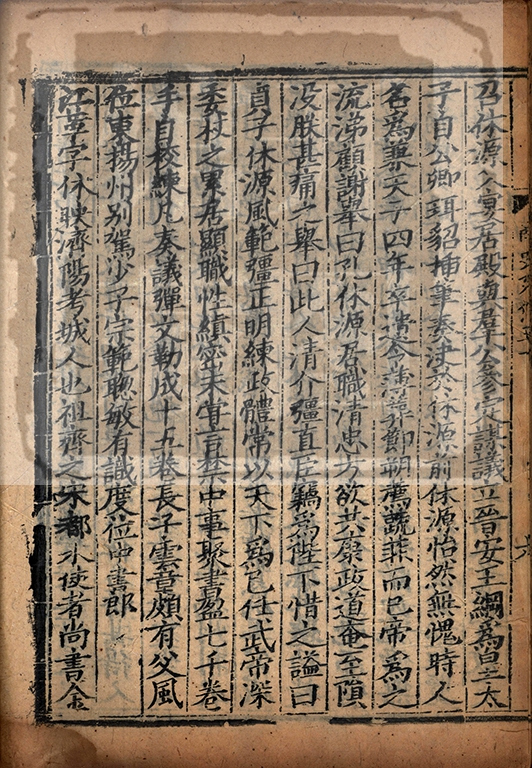 召休源入宴居殿與羣公參定謀議立晉安王綱爲皇太
子自公卿珥貂揷筆奏決於休源前休源怡然無愧時人
名爲兼天子四年卒遺令薄葬節朔薦蔬菲而已帝爲之
流涕顧謝舉曰孔休源居職清忠方欲共康政道奄至隕
没朕甚痛之舉曰此人清介彊直臣竊爲陛下惜之謚曰
貞子休源風範彊正明練政體常以天下爲已仕武帝深
委杖之累居顯職性縝密未甞言禁中事聚書盈七千卷
手自校練凡奏議彈文勒成十五卷長子雲章頗有父風
位東揚州别駕少子宗範聰敏有識度位中書郎
江革字休映濟陽考城人也祖齊之宋都水使者尚書金